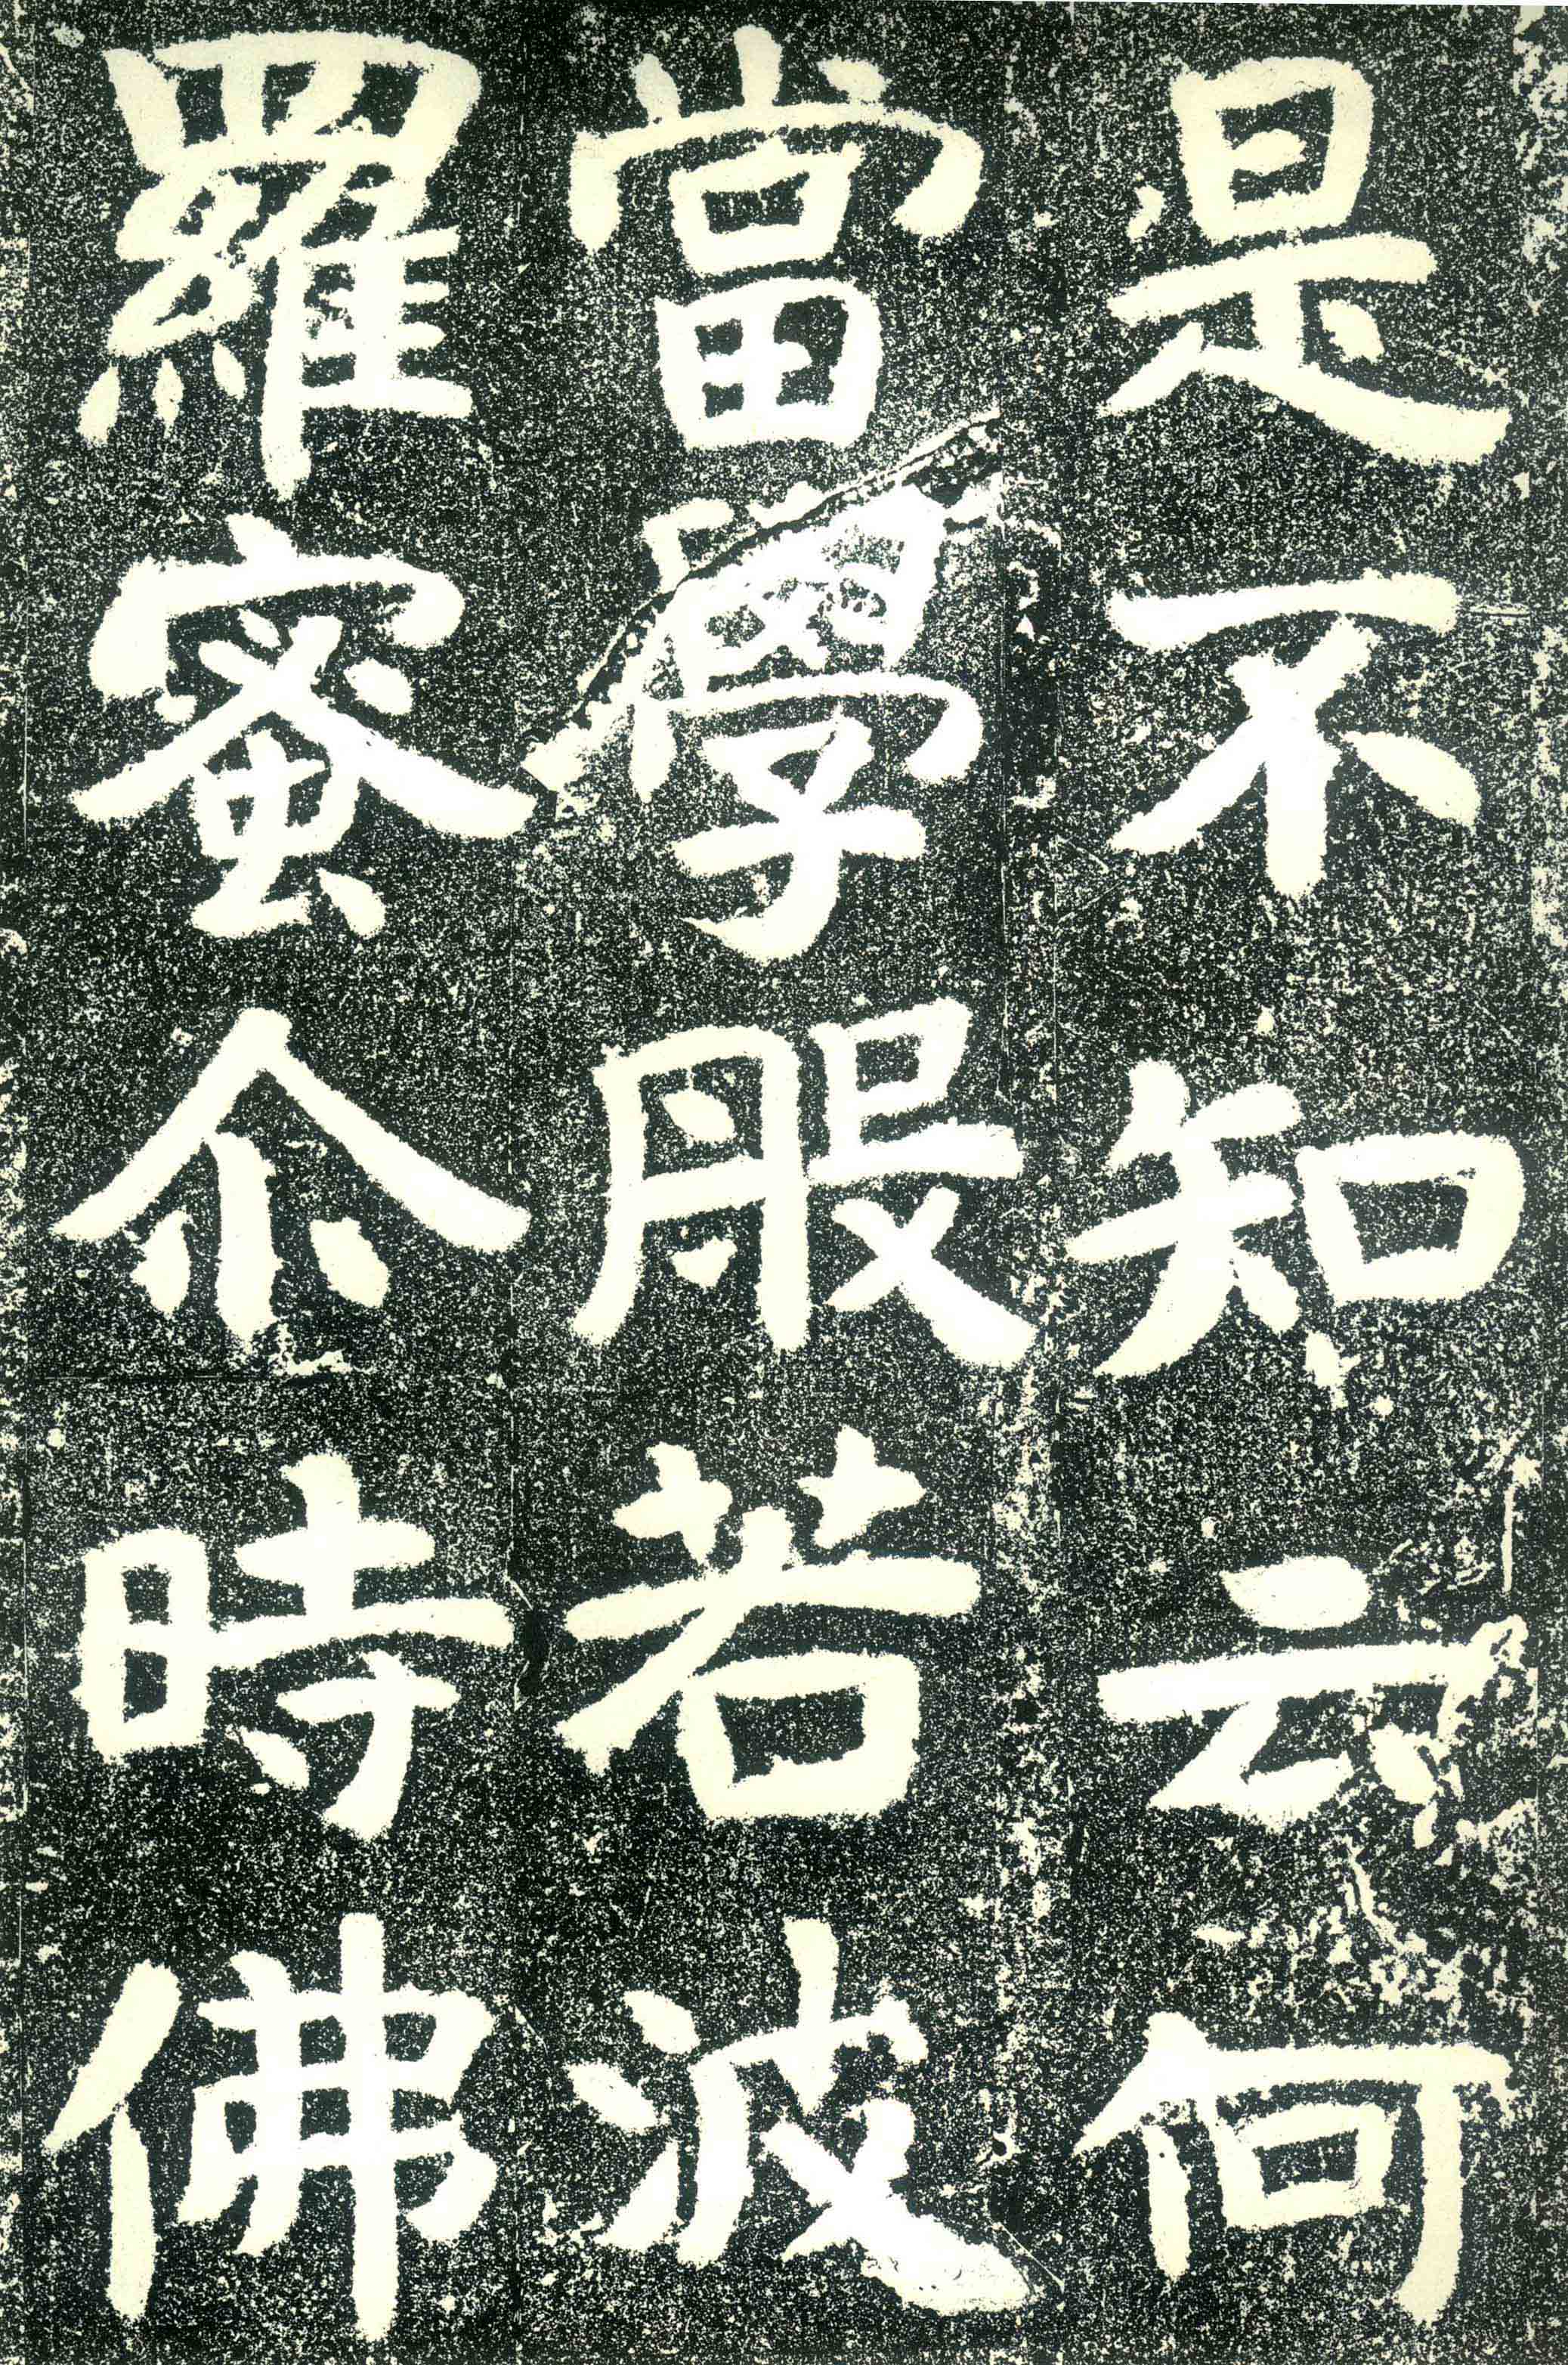 是不知云何
當學般若波
羅蜜尒時佛